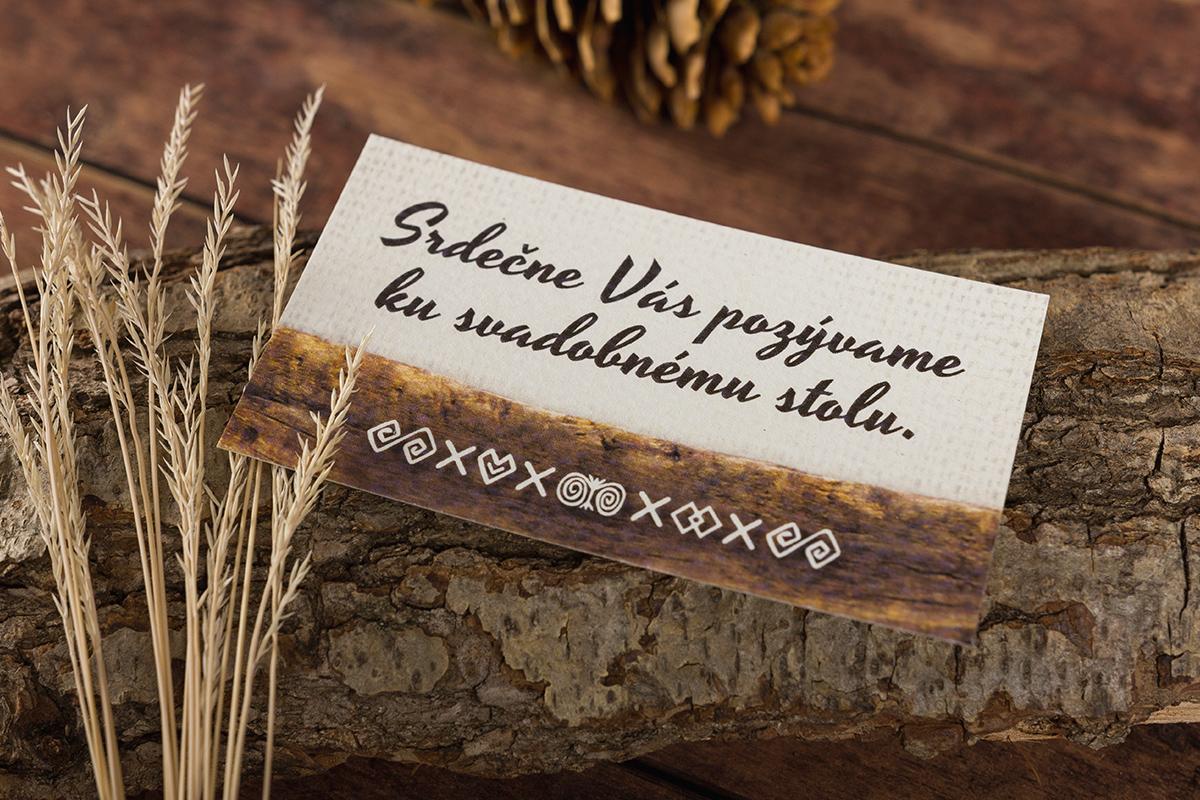 Srdečne Vás pozývame
ku svadobnému stolu.